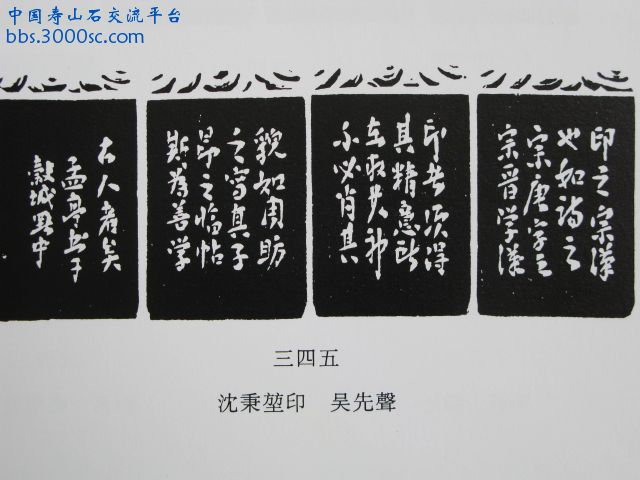 中国寿山石交流平台
bbs.3000sc.com
印之宗漢
也如詩之
宗唐字之
宗晋学漢
印者須得
其精意所
在取其神
不必肖其
貌如周昉
之寫真子
昂之臨帖
斯為善学
古人者矣
孟亭書于
城中
三四五
沈秉堃印 吴先聲